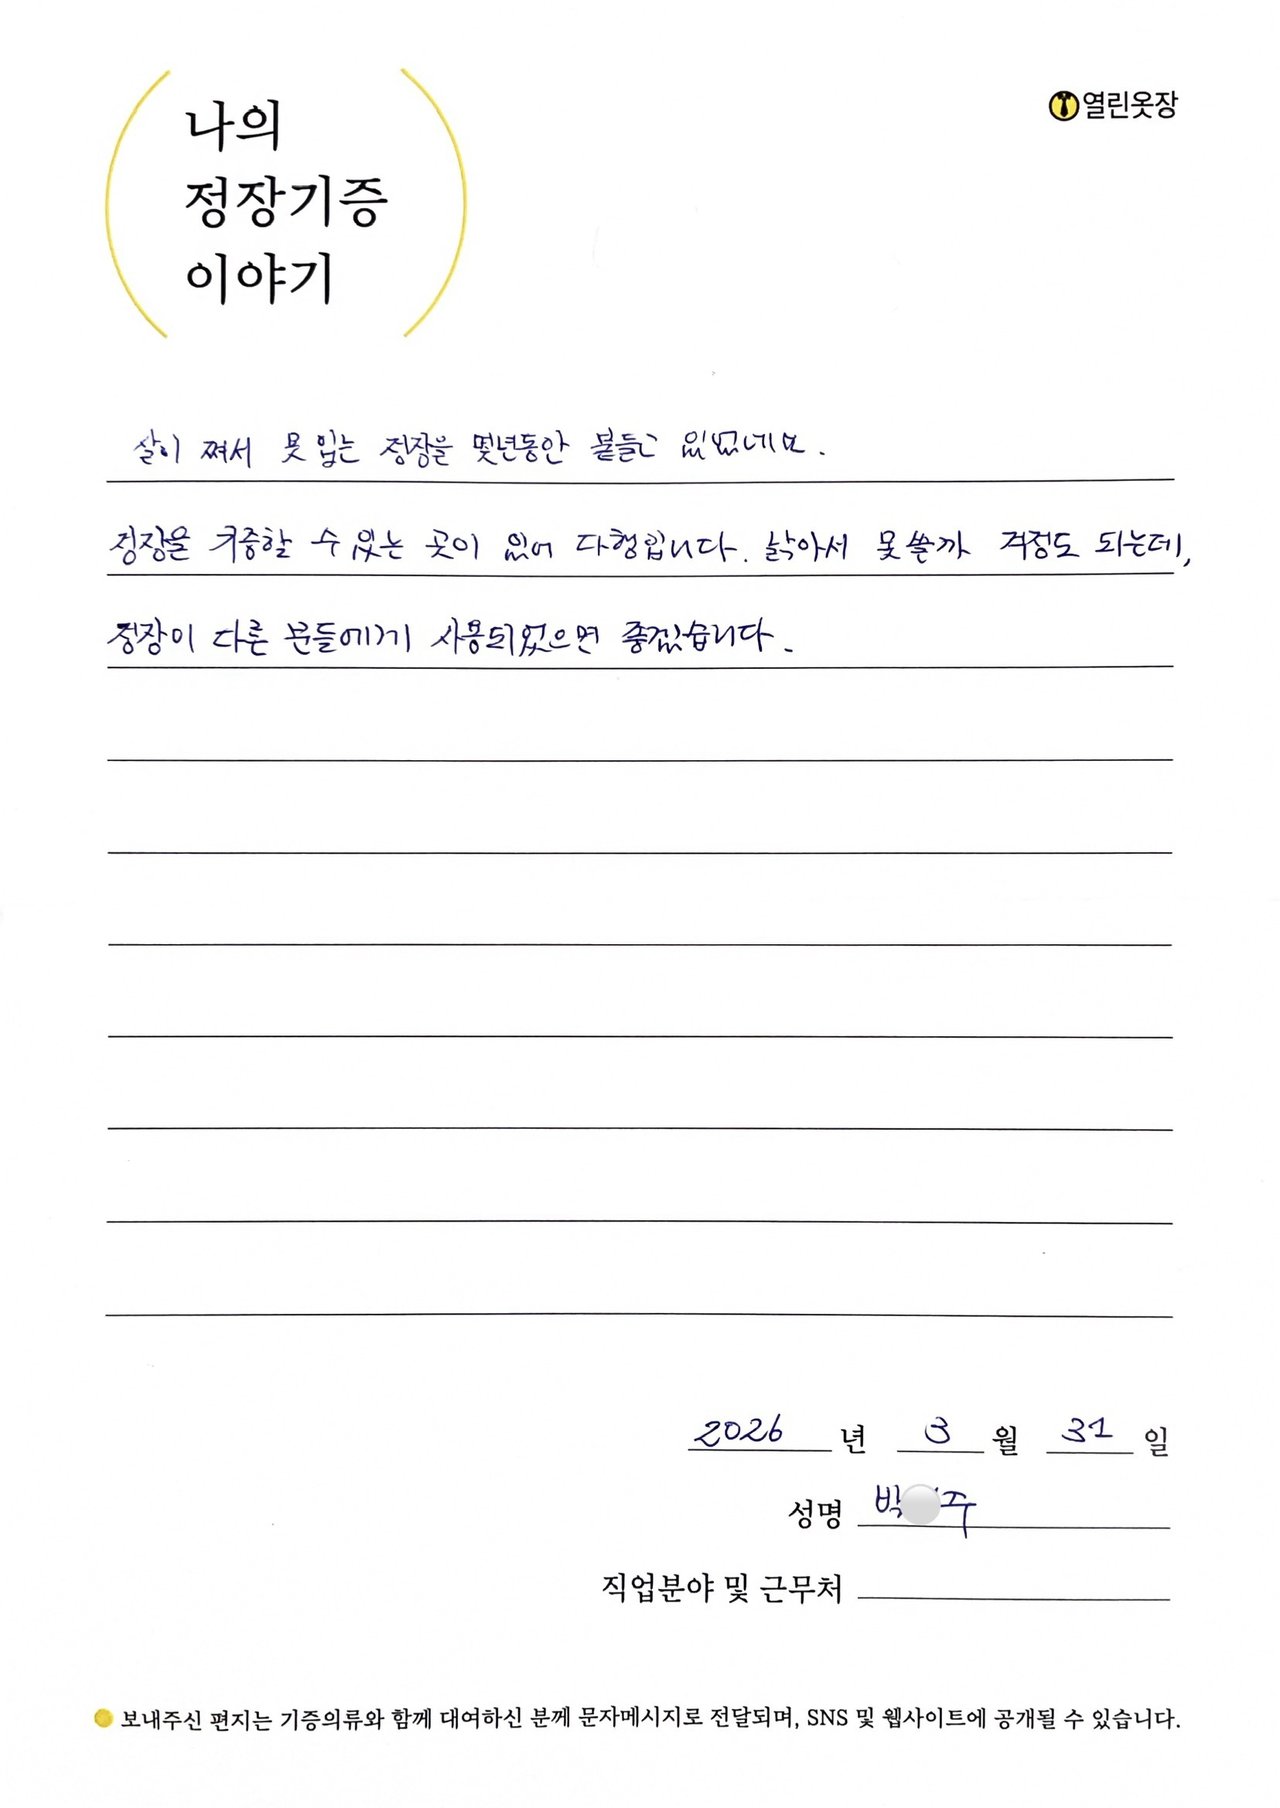 나의
정장기증
이야기
열린옷장
살이 쪄서 못 입는 정장을 몇년동안 붙들고 있었네요.
정장을 기증할 수 있는 곳이 있어 다행입니다. 낡아서 못쓸까 걱정도 되는데,
정장이 다른 분들에게 사용되었으면 좋겠습니다.
2026 년 3 월 31 일
성명 박 주
직업분야 및 근무처
보내주신 편지는 기증의류와 함께 대여하신 분께 문자메시지로 전달되며, SNS 및 웹사이트에 공개될 수 있습니다.